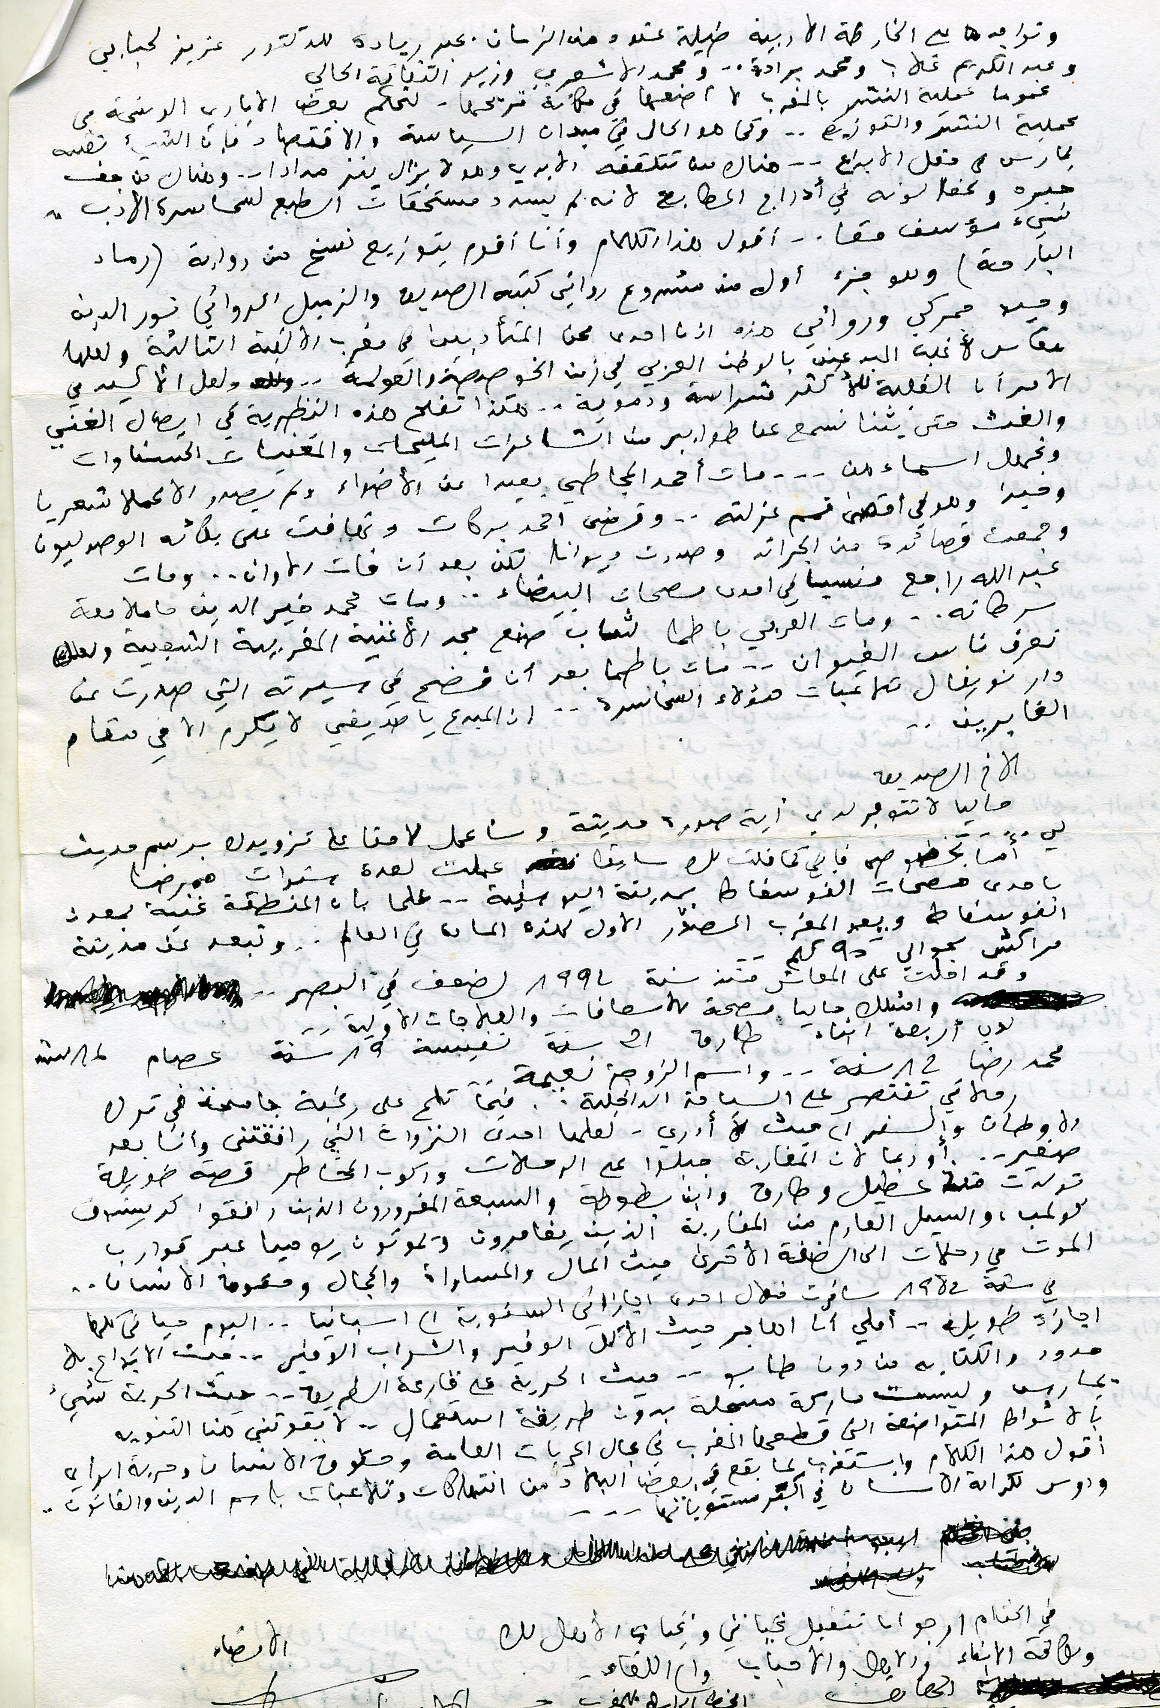 وتواجدها على الخارطة الأدبية طيلة عقود من الزمان. عبد زيادة للدكتور عزيز لحبابي
وعبد الكريم غلاب ومحمد برادة.. ومحمد الأشعري وزير الثقافة الحالي
عموما عملية النشر بالمغرب لا أضعها في خانة .. تتحكم بعض الأيادي الوسخة في
عملية النشر والتوزيع .. وكما هو الحال في ميدان السياسة والاقتصاد فإن الشيء نفسه
يمارس في حقل الإبداع -- هناك من تتلقفه الأيدي وهو لا يزال ينز مدادا.. وهناك من جف
حبره وعفا لونه في أدراج المطابع لأنه لم يسدد مستحقات الطبع لسماسرة الأدب ..
شيء مؤسف حقا.. أقول هذا الكلام وأنا أقوم بتوزيع نسخ من رواية (رماد
البارحة) وهو جزء أول من مشروع روائي كتبه الصديق والزميل الروائي نور الدين
وحيد جمركي وروائي هذه إذن إحدى محن المتأدبين في مغرب الألفية الثالثة ولعلها
مقاس لأغلب المبدعين بالوطن العربي في زمن الخوصصة والعولمة .. ولعل الأكيد في
الأمر أن الغلبة للأكثر شراسة ودموية .. هكذا تفلح هذه النظرية في إيصال الغني
والغث حتى بتنا نسمع عن طوابير من الشاعرات المليحات والمغنيات الحسناوات
ونجهل أسماءهن --- مات أحمد المجاطي بعيدا عن الأضواء ولم يصدر إلا عملا شعريا
وحيدا وهو في أقصى عزلته .. وقضى أحمد بركات وتهافت على بكائه الوصوليون
وجمعت قصائده من الجرائد وصدرت ديوانا لكن بعد أن فات الأوان .. ومات
عبد الله راجع منسيا في إحدى مصحات البيضاء .. ومات محمد خير الدين حاملا معه
سرطانه .. ومات العربي باطما شهاب صنع مجد الأغنية المغربية الشعبية
نعرف ناس الغيوان -- مات باطما بعد أن فضح في سيرته التي صدرت عن
دار توبقال تلاعبات هؤلاء السماسرة .. إن المبدع يا صديقي لا يكرم إلا في مقام
الغابرين ..
الأخ الصديق
حاليا لا تتوفر لدي أية صورة حديثة وسأعمل لاحقا على تزويدك برسم حديث
لي .. أما بخصوص فإني كما قلت لك سابقا عملت لعدة سنوات ممرضا
بإحدى مصحات الفوسفاط بمدينة اليوسفية -- علما بأن المنطقة غنية بمعدن
الفوسفاط ويعد المغرب المصدر الأول لهذه المادة في العالم .. وتبعد عن مدينة
مراكش بحوالي 90 كلم
وقد أحلت على المعاش منذ سنة 1992 لضعف في البصر ..
وأمتلك حاليا مصحة للإسعافات والعلاجات الأولية ..
لدي أربعة أبناء طارق سنة نفيسة 19 سنة عصام سنة
محمد رضا سنة .. واسم الزوجة نعيمة
رحلاتي تقتصر على السياحة الداخلية .. فيما تلح علي رغبة جامحة في ترك
الأوطان والسفر إلى حيث لا أدري - لعلها إحدى النزوات التي رافقتني وأنا بعد
صغير .. أو ربما لأن المغاربة جبلوا على الرحلات وركوب المخاطر قصة طويلة
توارت منذ عقيل وطارق وابن بطوطة والسبعة المغرورون الذين رافقوا كريستوف
كولمب، والسيل العارم من المغاربة الذين يغامرون ويموتون يوميا عبر قوارب
الموت في رحلات إلى الضفة الأخرى حيث المال والمساواة والجمال وحقوق الإنسان ..
في سنة 1982 سافرت خلال إحدى إجازاتي السنوية إلى إسبانيا .. اليوم حياتي كلها
إجازة طويلة .. أملي أن أهاجر حيث الأكل الوفير والشراب الوفير .. حيث الإبداع بلا
حدود والكتابة من دون طابو .. حيث الحرية على قارعة الطريق .. حيث الحرية شيء
يمارس وليست ماركة مسجلة بدون طريقة استعمال .. لا يفوتني هنا التنويه
بالأشواط المتواضعة التي قطعها المغرب في مجال الحريات العامة وحقوق الإنسان وحرية الرأي
أقول هذا الكلام وأستغرب لما يقع في بعض البلاد من انتهاكات وتلاعبات باسم الدين والقانون ..
ودوس لكرامة الإنسان في أكثر مستوياتها ---
في الختام أرجو أن تتقبل تحياتي وتحيات الأهل لك
ولكافة الأبناء والأهل والأحباب وإلى اللقاء ..
الإمضاء